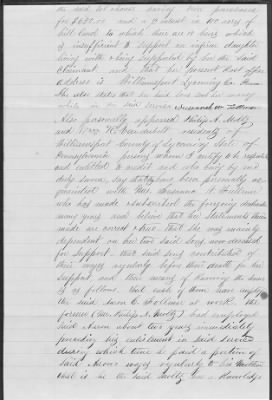 the said lot shares having been purchased
for $630.00 and a interest in 100 acres of
hill land to which there is a lien which
is insufficient to support an infirm daughter
living with & being supported by her the said
Claimant and that her present Post office
address is Williamsport Lycoming Co.
She also states that her said son not in
while in the said service Susannah W. Follmer
Also personally appeared Philip A. Moltz
and Wm H. Vanderbelt residents of
Williamsport County of Lycoming State of
Pennsylvania persons whom I certify to be respectable
and entitled to credit and who being by me
duly sworn, say they have been personally ac-
quainted with Mrs. Susanna Follmer
who has made & subscribed the foregoing declaration
many years and believe that her statements therein
made are correct & true that she was mainly
dependent on her two said sons, now deceased
for support that said sons contributed of
their wages regularly before their death for her
support and their means of knowing the same is
as follows. that each of them have employed
the said Aaron C. Follmer at work the
former (Mr. Philip A. Moltz) had employed
said Aaron about two years immediately
preceding his enlistment in said service
during which time he paid a portion of
said Aaron's wages regularly to his Mother
that is he the said Moltz has a knowledge